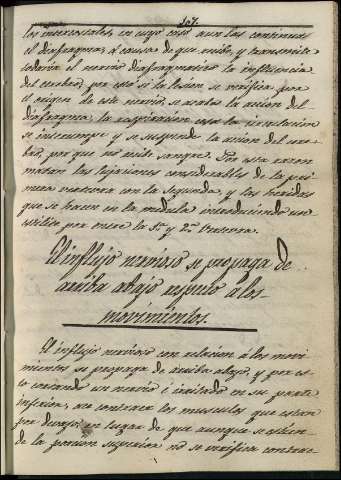 107.
los intercostales, en cuyo caso aun las continua
el diafragma, á causa de que recibe, y transmite
todavia el nervio diafragmatico la influencia
del cerebro; por esto si la lesion se verifica por
el origen de este nervio, se acaba la accion del
diafragma, la respiracion cesa la circulacion
se interrumpe y se suspende la accion del cere-
bro, por que no recibe sangre. Por esta razon
matan las lujaciones considerables de la pri
mera vertebra con la segunda, y las heridas
que se hacen en la medula introduciendo un
estilete por entre la 1ª y 2ª vertebra.
El influjo nervioso se propaga de
arriba abajo respecto á los
movimientos.
El influjo nervioso con relacion á los movi
mientos se propaga de arriba abajo, y por es
to cortando un nervio é irritado en su parte
inferior, se contraen los musculos que estan
por debajo; en lugar de que aunque se estien-
de la porcion superior no se verifica contrac